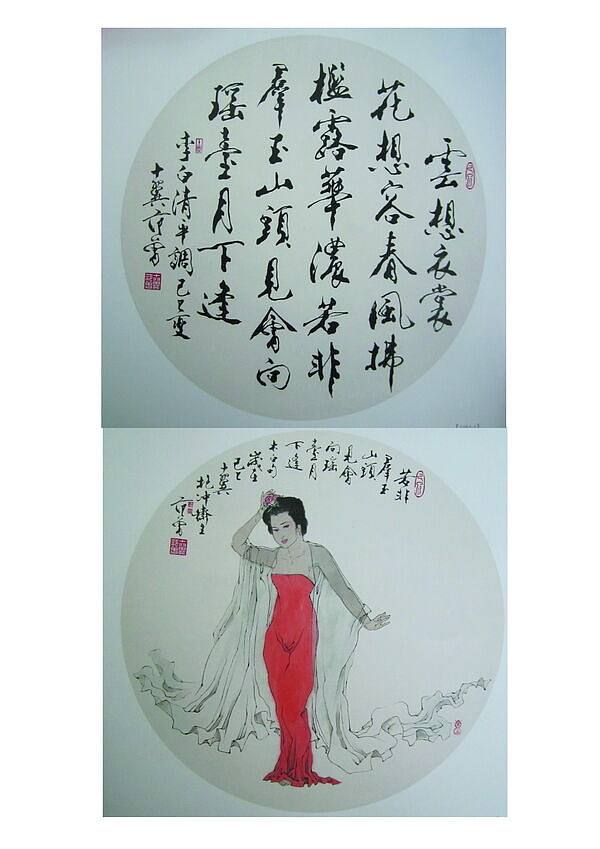 雲想衣裳
花想容春風拂
檻露華濃若非
羣玉山頭見會向
瑶臺月下逢
李白清平調己巳夏
十翼范曾
若非
羣玉
山頭
見會
向瑶
臺月
下逢
太白句
歲在
己巳
十翼
抱冲齋主
范曾